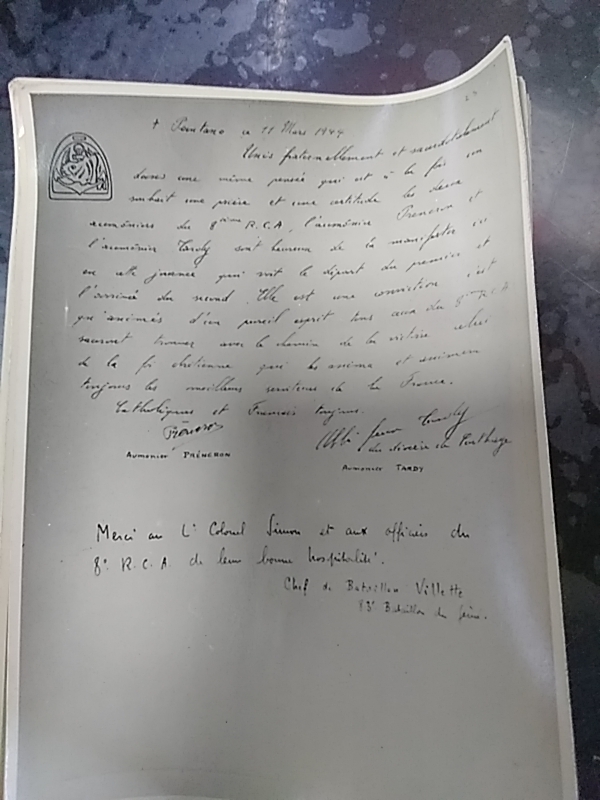 23
+ Pentano ce 11 Mars 1944
Unis fraternellement et sacerdotalement
dans une même pensée qui est à la fois un
souhait une prière et une certitude les deux
aumôniers du 8ème R.C.A, l'aumônier Préneron et
l'aumônier Tardy sont heureux de la manifester en
en cette journée qui voit le départ du premier et
l'arrivée du second. Elle est une conviction : c'est
qu'animés d'un pareil esprit tous ceux du 8ème R.C.A
sauront trouver avec le chemin de la victoire celui
de la foi chrétienne qui les anima et animera
toujours les meilleurs serviteurs de la France.
Catholiques et Français toujours.
Préneron
Abbé Jean Tardy
du diocèse de Carthage
AUMONIER PRÉNERON
AUMONIER TARDY
Merci au Lt Colonel Simon et aux officiers du
8e R.C.A. de leur bonne hospitalité.
Chef de Bataillon Villette
83e Bataillon du Génie.